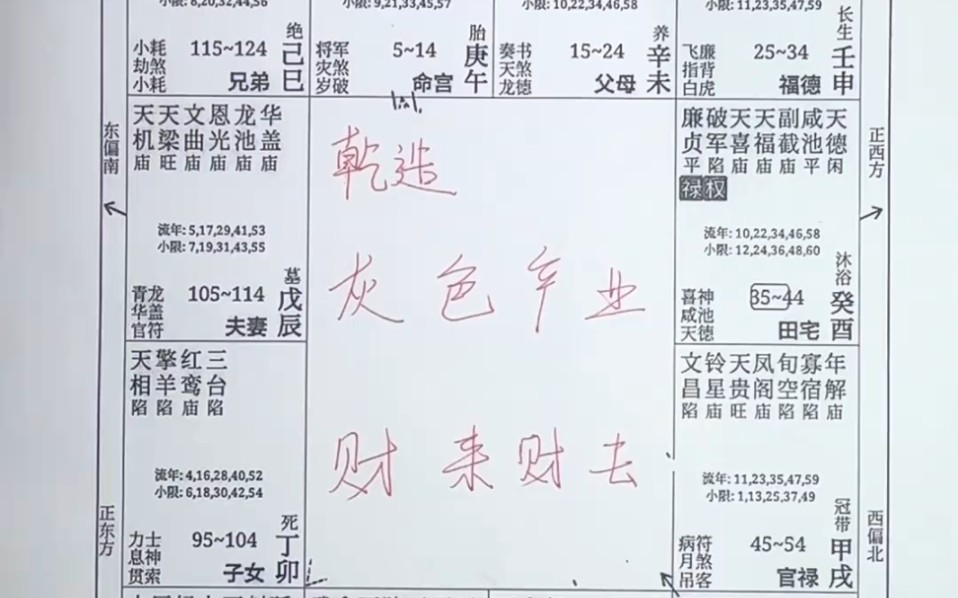 小限: 8,20,32,44,56
小限: 9,21,33,45,57
小限: 10,22,34,46,58
小限: 11,23,35,47,59
小耗
劫煞
小耗
115~124
兄弟
绝
己巳
将军
灾煞
岁破
5~14
命宫
胎
庚午
奏书
天煞
龙德
15~24
父母
养
辛未
飞廉
指背
白虎
25~34
福德
长生
壬申
东偏南
天机庙
天梁旺
文曲庙
恩光庙
龙池庙
华盖庙
流年: 5,17,29,41,53
小限: 7,19,31,43,55
青龙
华盖
官符
105~114
夫妻
墓
戊辰
乾造
灰色产业
财来财去
廉贞平禄
破军陷权
天喜庙
天福庙
副截庙
咸池平
天德闲
流年: 10,22,34,46,58
小限: 12,24,36,48,60
喜神
咸池
天德
35~44
田宅
沐浴
癸酉
正西方
天相陷
擎羊陷
红鸾庙
三台陷
流年: 4,16,28,40,52
小限: 6,18,30,42,54
力士
息神
贯索
95~104
子女
死
丁卯
正东方
文昌陷
铃星庙
天贵旺
凤阁庙
旬空陷
寡宿陷
年解庙
流年: 11,23,35,47,59
小限: 1,13,25,37,49
病符
月煞
吊客
45~54
官禄
冠带
甲戌
西偏北